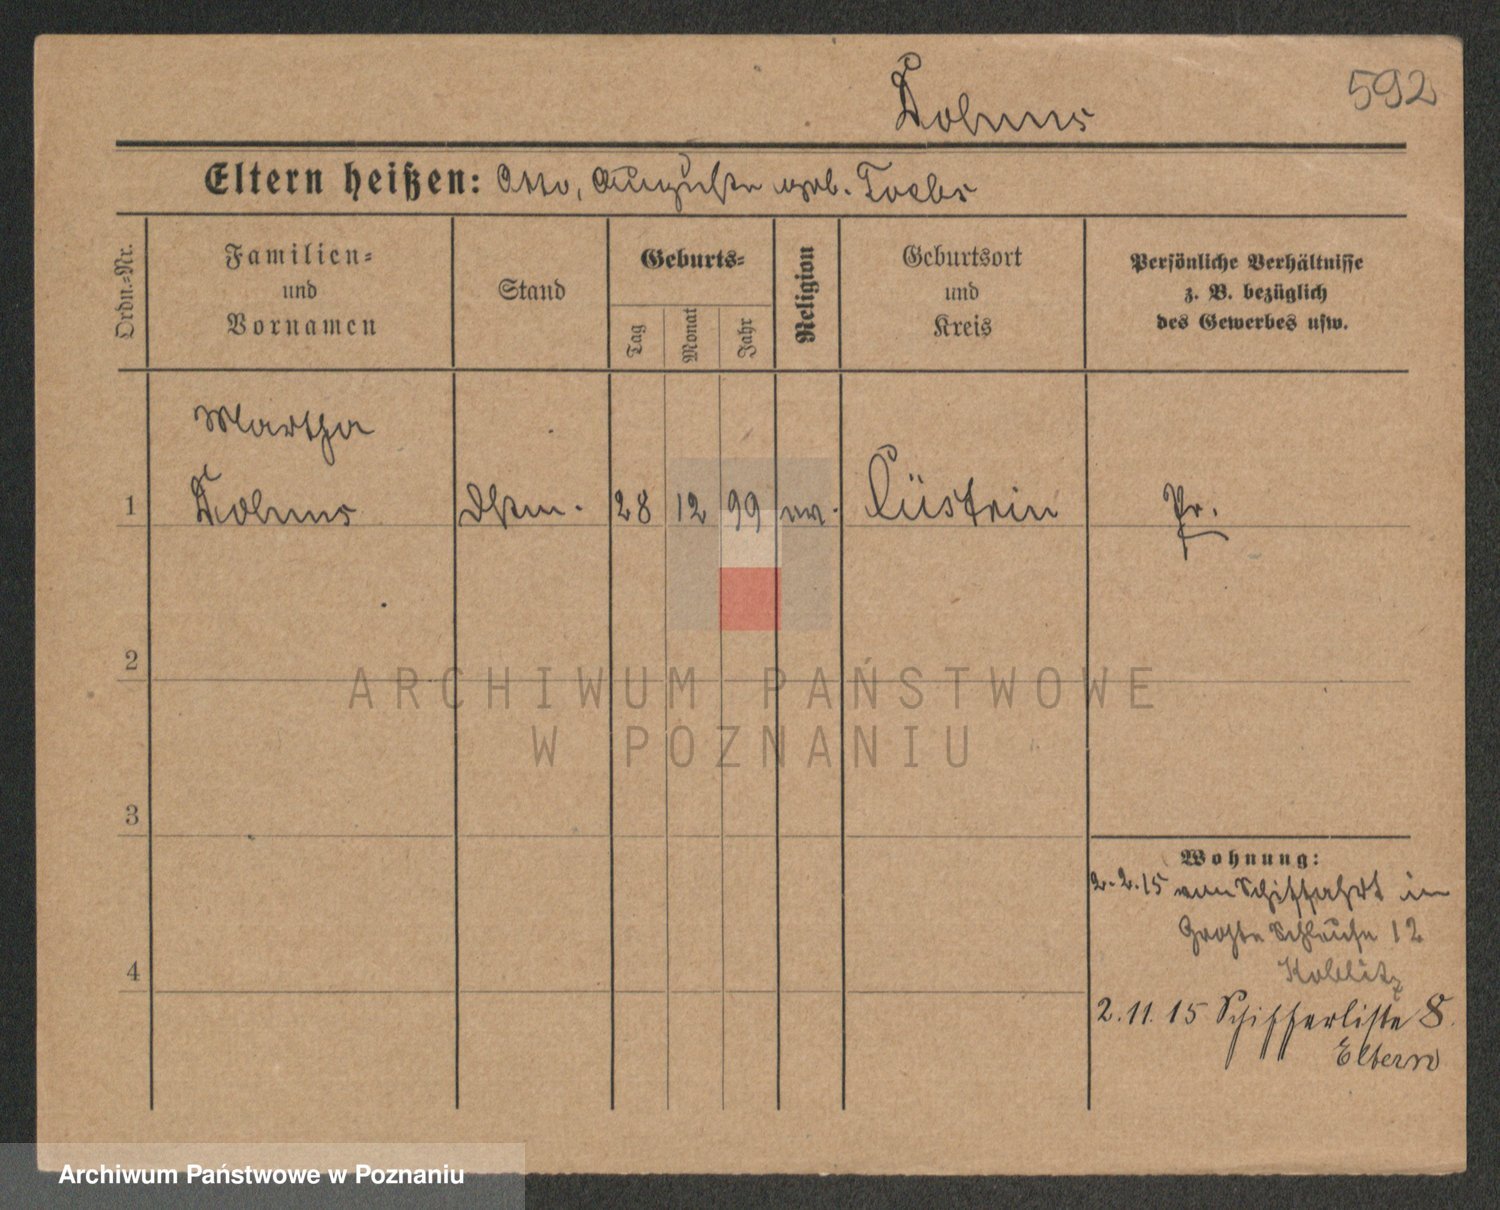 Dohms
592
Eltern heißen: Otto, Auguste geb.
Ordn.-Nr.
Familien-
und
Vornamen
Stand
Geburts-
Tag
Monat
Jahr
Religion
Geburtsort
und
Kreis
Persönliche Verhältnisse
z. B. bezüglich
des Gewerbes usw.
Martha
1 Dohms 28 12 99 ev. Cüstrin Pr.
2
3
4
Wohnung:
2.2.15 von Schiffahrt in
Große Schleuse 12
2.11.15 Schifferliste 8.
Eltern
ARCHIWUM PAŃSTWOWE
W POZNANIU
Archiwum Państwowe w Poznaniu